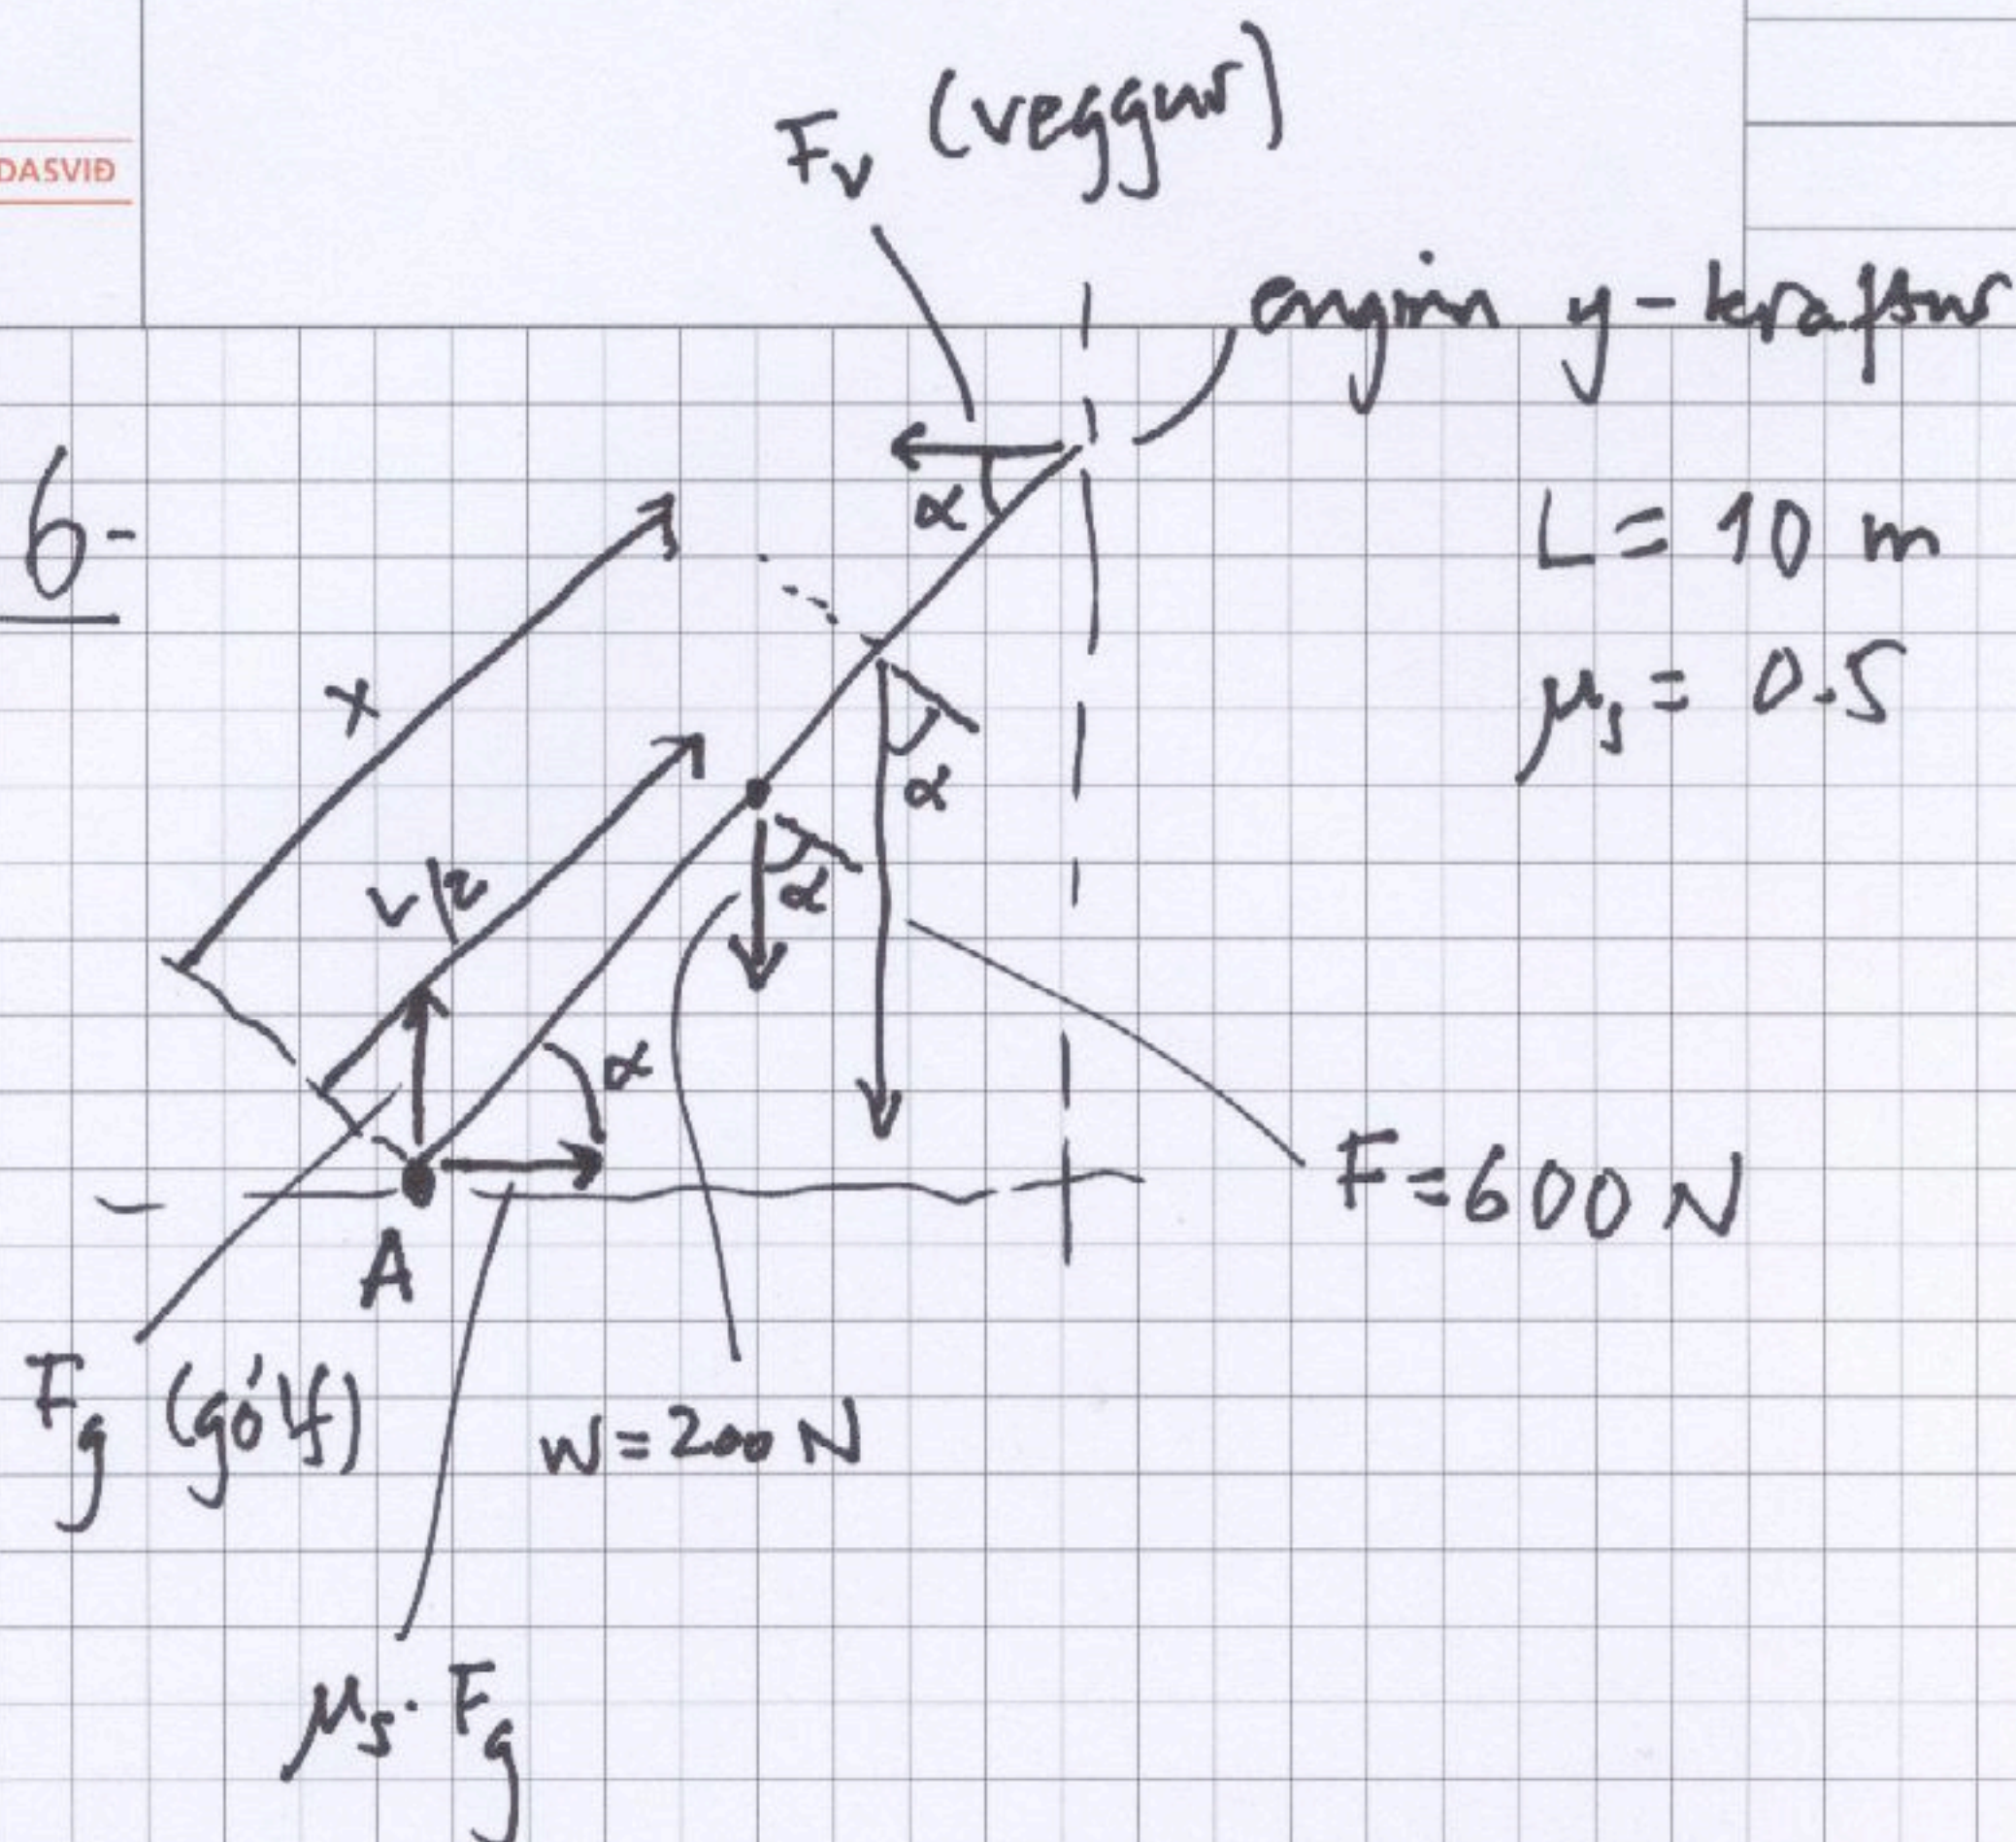 DASVIÐ
Fv (veggur)
enginn y-kraftur
6-
α
L = 10 m
μs = 0.5
x
α
L/2
α
α
F = 600 N
A
Fg (gólf)
w = 200 N
μs · Fg